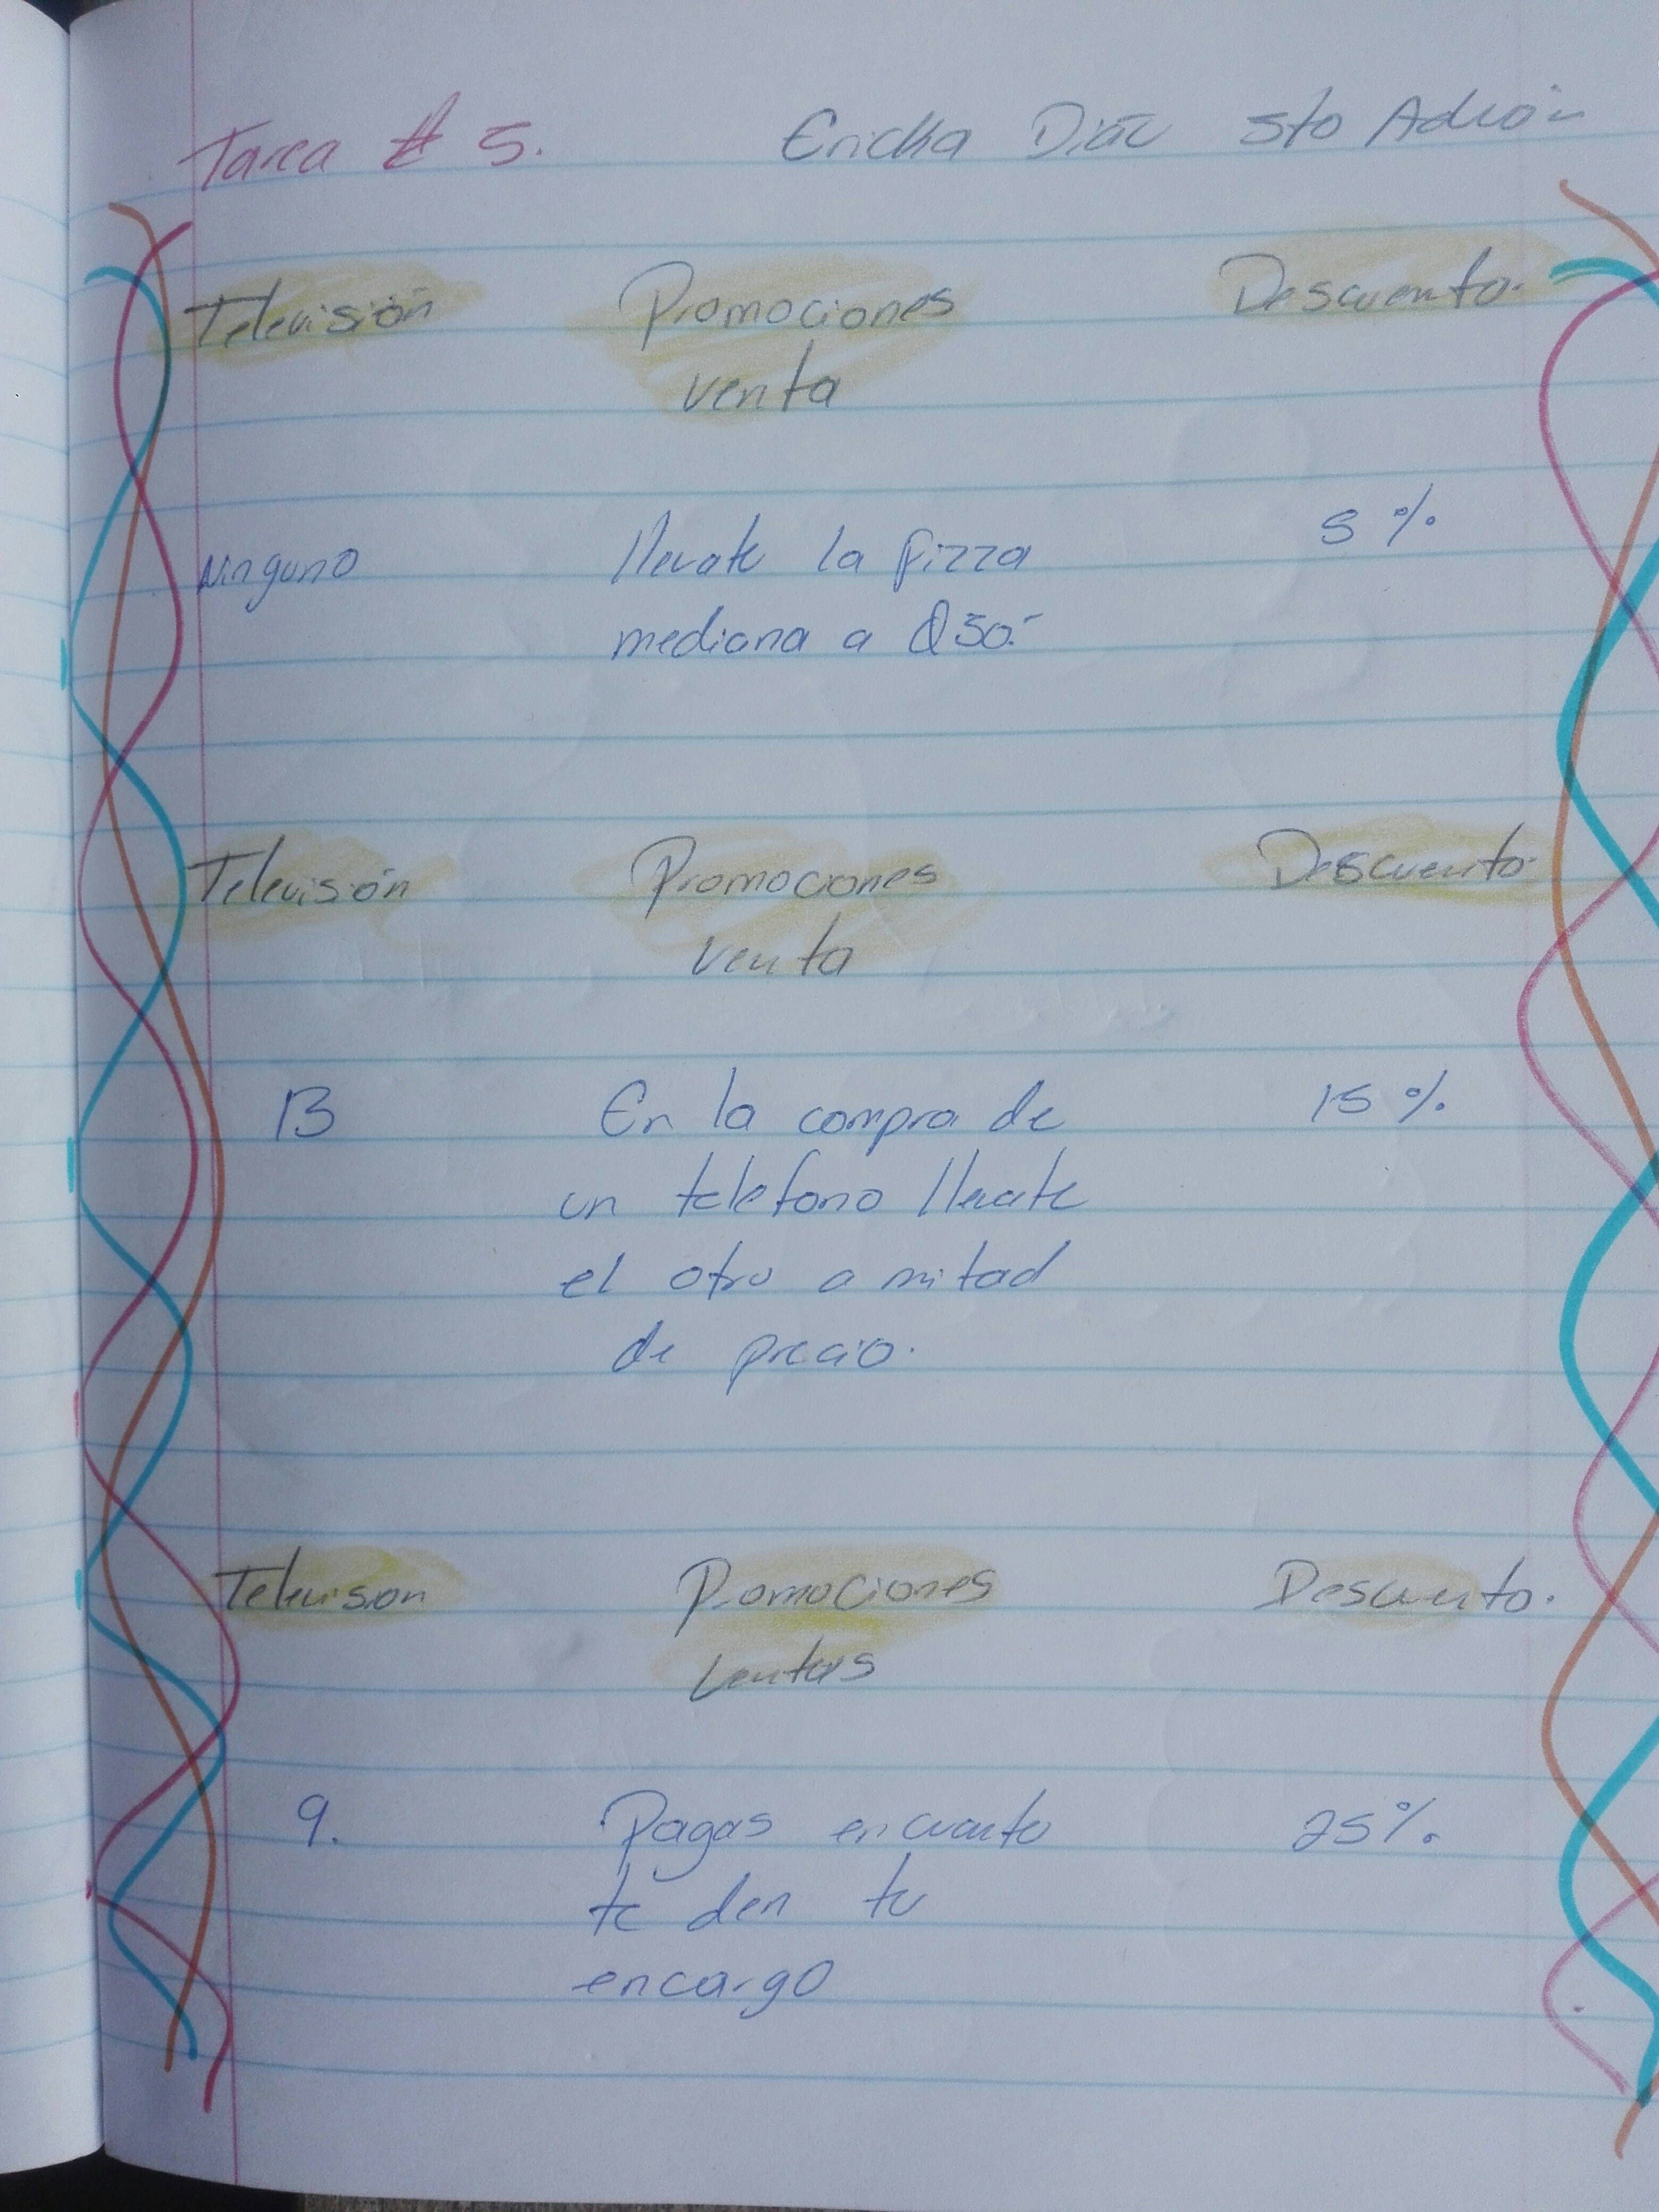 Tarea # 5. Ericka Díaz 5to Admón
Televisión Promociones Descuento.
venta
Ninguno llevate la pizza 5 %
mediana a Q50.-
Televisión Promociones Descuento.
venta
13 En la compra de 15 %
un telefono llevate
el otro a mitad
de precio.
Television Promociones Descuento.
ventas
9. Pagas en cuanto 25%
te den tu
encargo